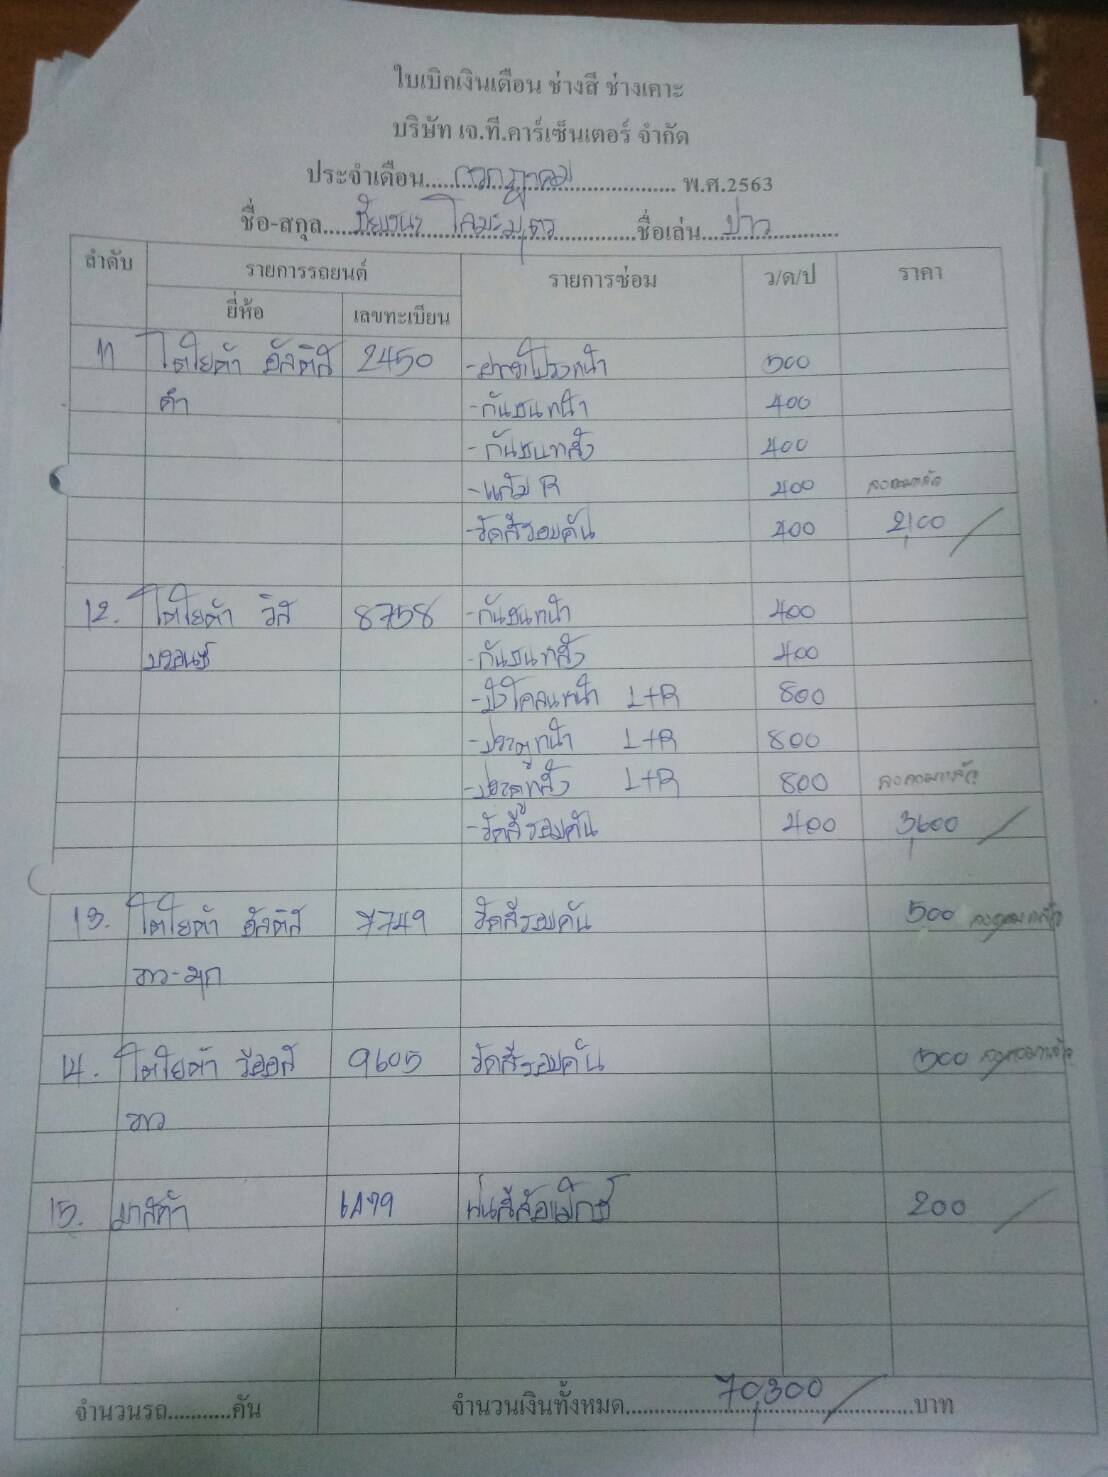 ใบเบิกเงินเดือน ช่างสี ช่างเคาะ
บริษัท เจ.ที.คาร์เซ็นเตอร์ จำกัด
ประจำเดือน....กรกฎาคม.... พ.ศ.2563
ชื่อ-สกุล....ชัยชนะ โคมะบุตร....ชื่อเล่น....บ่าว....
ลำดับ รายการรถยนต์ รายการซ่อม ว/ด/ป ราคา
ยี่ห้อ เลขทะเบียน
11 โตโยต้า อัลติส 2450 -ฝากระโปรงหน้า 500
ดำ -กันชนหน้า 400
-กันชนหลัง 400
-แก้ม R 400 ลงคอมแล้ว
-ขัดสีรอบคัน 400 2,100
12. โตโยต้า วิส 8758 -กันชนหน้า 400
บรอนซ์ -กันชนหลัง 400
-บังโคลนหน้า L+R 800
-ประตูหน้า L+R 800
-ประตูหลัง L+R 800 ลงคอมแล้ว
-ขัดสีรอบคัน 400 3,600
13. โตโยต้า อัลติส 7749 ขัดสีรอบคัน 500 ลงคอมแล้ว
ขาว-มุก
14. โตโยต้า วีออส 9605 ขัดสีรอบคัน 500 ลงคอมแล้ว
ขาว
15. มาสด้า พ่นสีล้อแม็กซ์ 200
จำนวนรถ...........คัน จำนวนเงินทั้งหมด....70,300....บาท